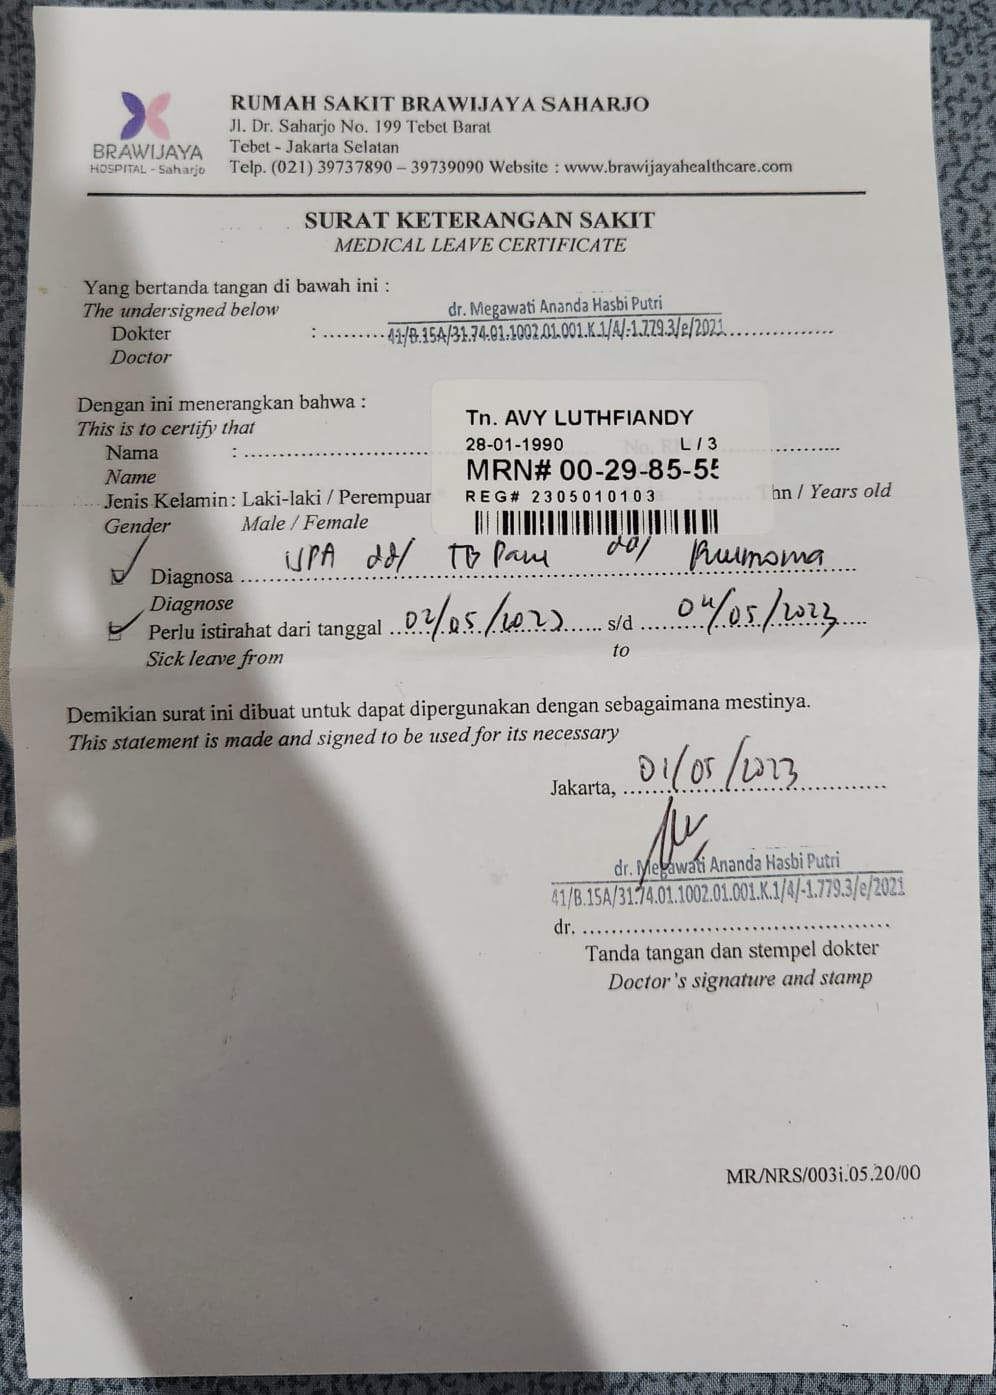 BRAWIJAYA
HOSPITAL - Saharjo
RUMAH SAKIT BRAWIJAYA SAHARJO
Jl. Dr. Saharjo No. 199 Tebet Barat
Tebet - Jakarta Selatan
Telp. (021) 39737890 – 39739090 Website : www.brawijayahealthcare.com
SURAT KETERANGAN SAKIT
MEDICAL LEAVE CERTIFICATE
Yang bertanda tangan di bawah ini :
The undersigned below
dr. Megawati Ananda Hasbi Putri
Dokter : 41/B.15A/31.74.01.1002.01.001.K.1/4/-1.779.3/e/2021
Doctor
Dengan ini menerangkan bahwa :
This is to certify that
Tn. AVY LUTHFIANDY
28-01-1990 L / 3
Nama :
Name
MRN# 00-29-85-55
Jenis Kelamin : Laki-laki / Perempuan
REG# 2305010103
hn / Years old
Gender Male / Female
Diagnosa TB Paru dd/
Diagnose
Perlu istirahat dari tanggal 02/05/2023 s/d 04/05/2023
Sick leave from to
Demikian surat ini dibuat untuk dapat dipergunakan dengan sebagaimana mestinya.
This statement is made and signed to be used for its necessary
Jakarta, 01/05/2023
dr. Megawati Ananda Hasbi Putri
41/B.15A/31.74.01.1002.01.001.K.1/4/-1.779.3/e/2021
dr.
Tanda tangan dan stempel dokter
Doctor's signature and stamp
MR/NRS/003i.05.20/00